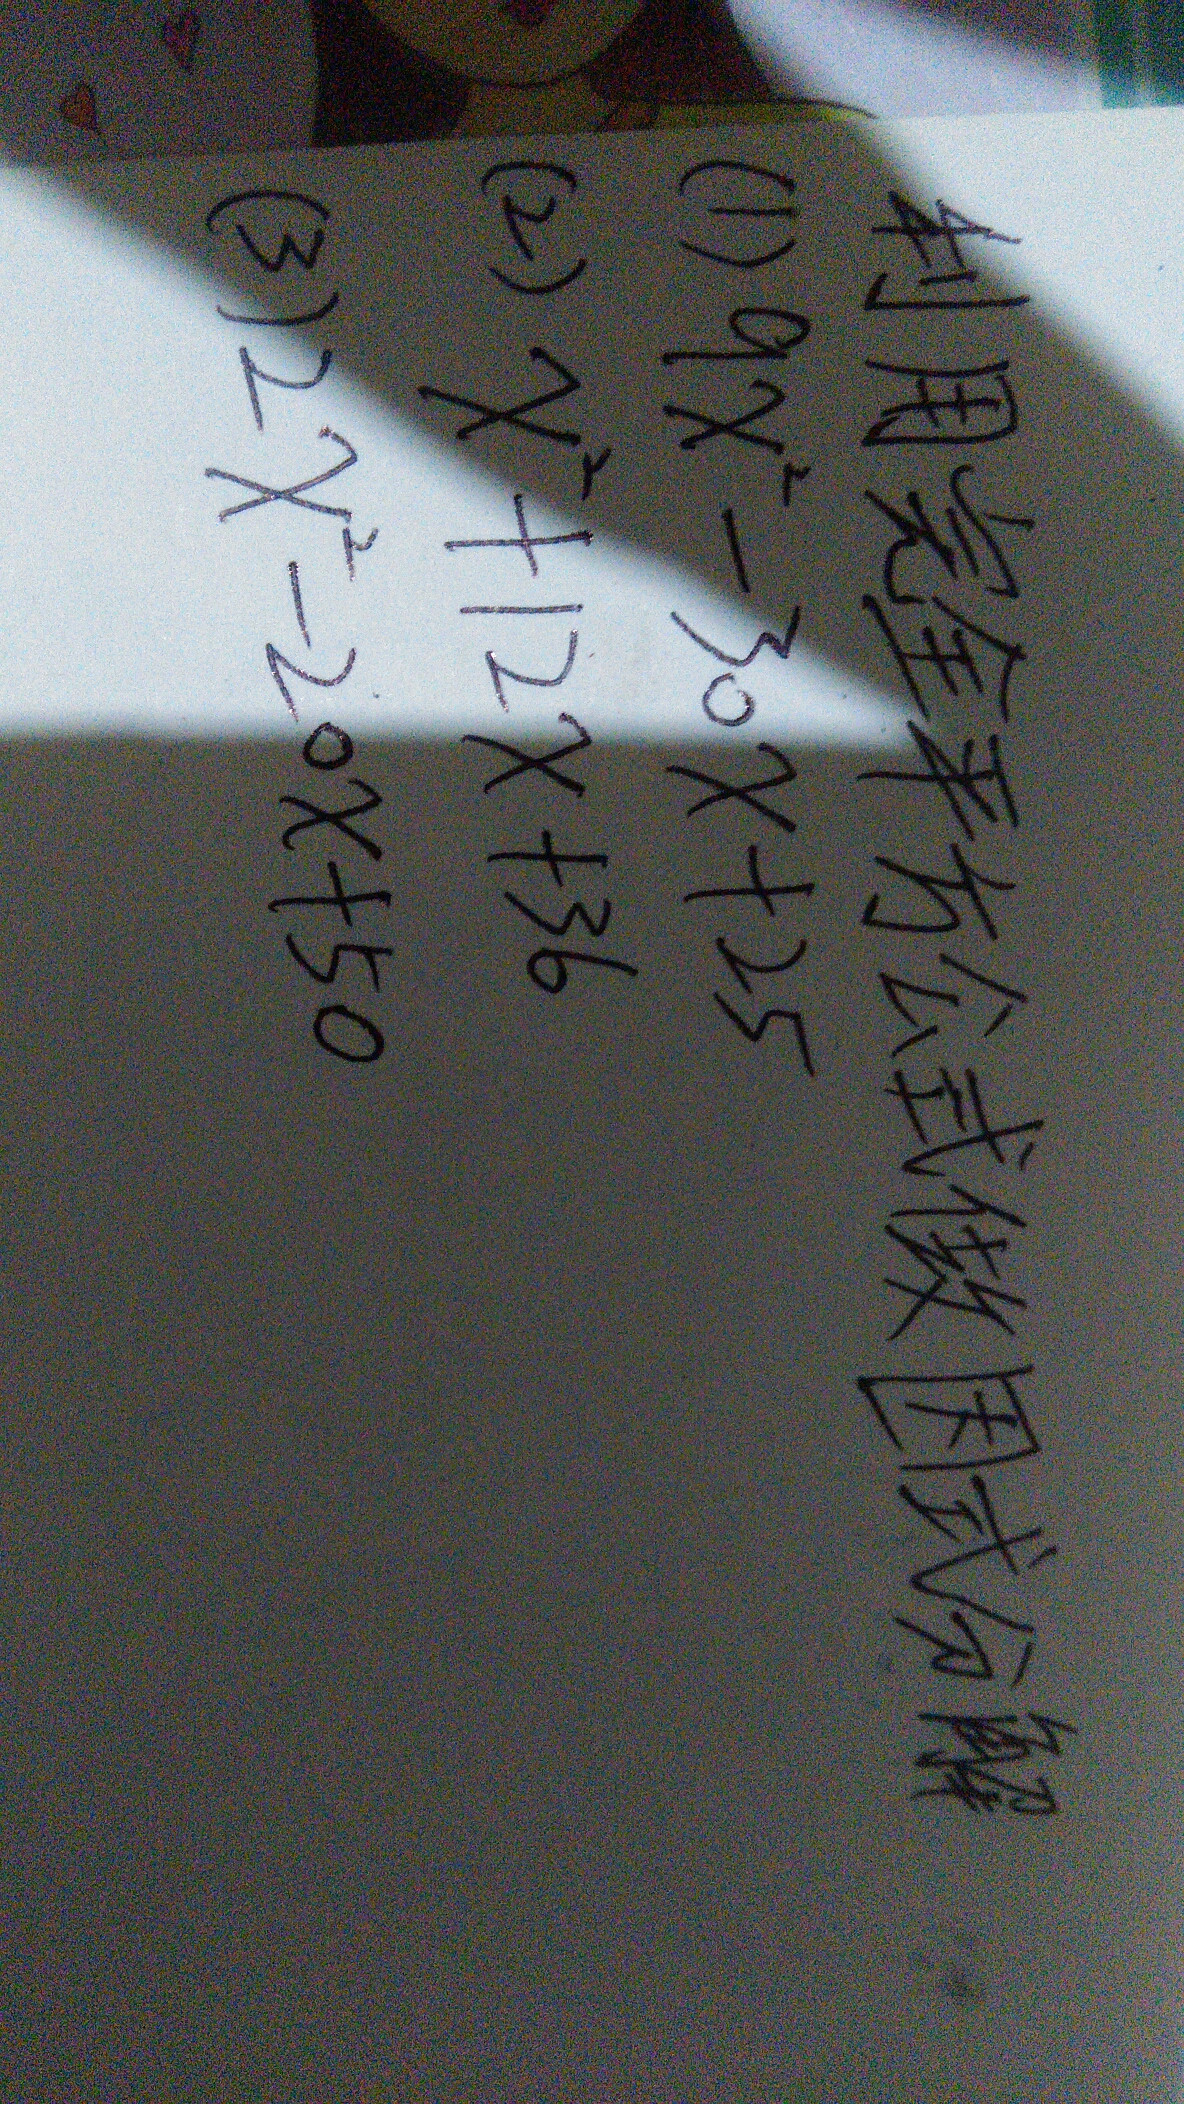 利用完全平方公式做因式分解
(1) 9x² - 30x + 25
(2) x² + 12x + 36
(3) 2x² - 20x + 50